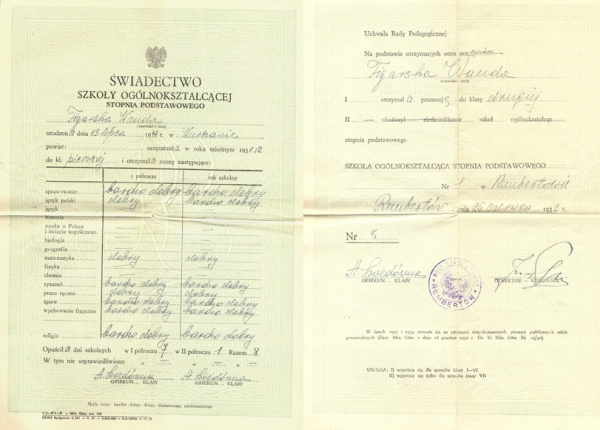 ŚWIADECTWO
SZKOŁY OGÓLNOKSZTAŁCĄCEJ
STOPNIA PODSTAWOWEGO
Figarska Wanda
(nazwisko i imię)
urodzon a dnia 13 lipca r. w
powiat uczęszczał a w roku szkolnym 1951/52
do kl. pierwszej i otrzymał a oceny następujące:
z półrocza rok szkolny
sprawowanie bardzo dobry bardzo dobry
język polski dobry bardzo dobry
język
historia
nauka o Polsce
i świecie współczesn.
biologia
geografia
matematyka dobry dobry
fizyka
chemia
rysunek bardzo dobry bardzo dobry
prace ręczne dobry dobry
śpiew bardzo dobry bardzo dobry
wychowanie fizyczne bardzo dobry bardzo dobry
religia bardzo dobry bardzo dobry
Opuścił a dni szkolnych w I półroczu 7 w II półroczu 1 Razem 8
W tym nie usprawiedliwiono
OPIEKUN KLASY OPIEKUN KLASY
Skala ocen: bardzo dobry, dobry, dostateczny, niedostateczny
Uchwała Rady Pedagogicznej:
Na podstawie otrzymanych ocen uczennica
Figarska Wanda
(nazwisko i imię)
I otrzymał a promocję do klasy drugiej
II ukończył siedmioklasową szkołę ogólnokształc.
stopnia podstawowego.
SZKOŁA OGÓLNOKSZTAŁCĄCA STOPNIA PODSTAWOWEGO
Nr 1 w Rembertowie
Rembertów, dnia 26 czerwca 1952 r.
Nr 8
OPIEKUN KLASY
REMBERTÓW
UWAGA: I) wypełnia się dla uczniów klas I–VI
II) wypełnia się tylko dla uczniów klasy VII